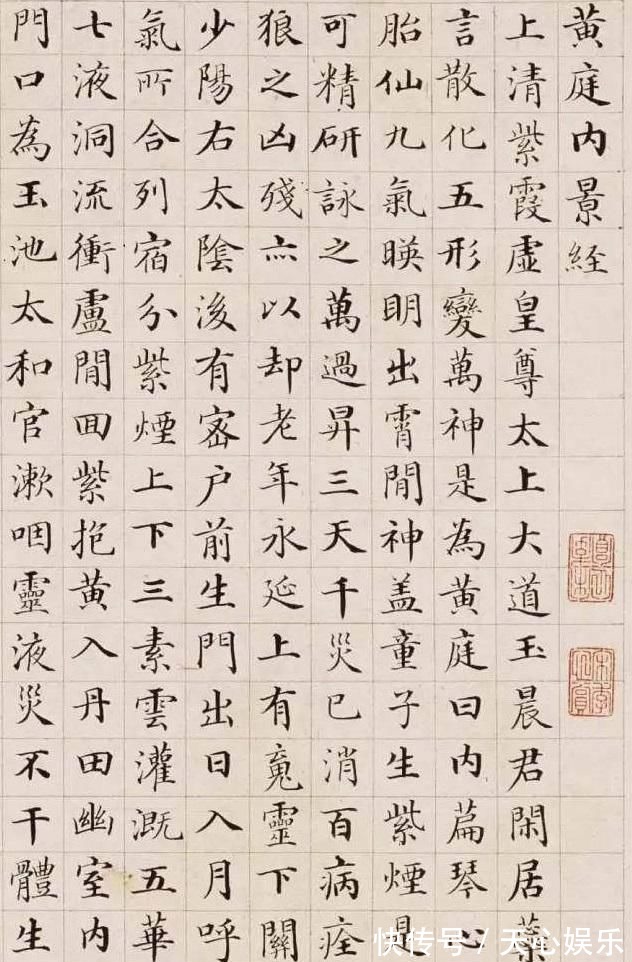 黄庭内景経
上清紫霞虚皇尊太上大道玉晨君閑居蘂
言散化五形變萬神是為黄庭曰内萹琴心
胎仙九氣暎明出霄閒神盖童子生紫煙
可精研詠之萬過昇三天千災已消百病痊
狼之凶殘亦以却老年永延上有魂靈下關
少陽右太陰後有密户前生門出日入月呼
氣所合列宿分紫煙上下三素雲灌溉五華
七液洞流衝廬閒回紫抱黄入丹田幽室内
門口為玉池太和官漱咽靈液災不干體生
快传号/天心娱乐